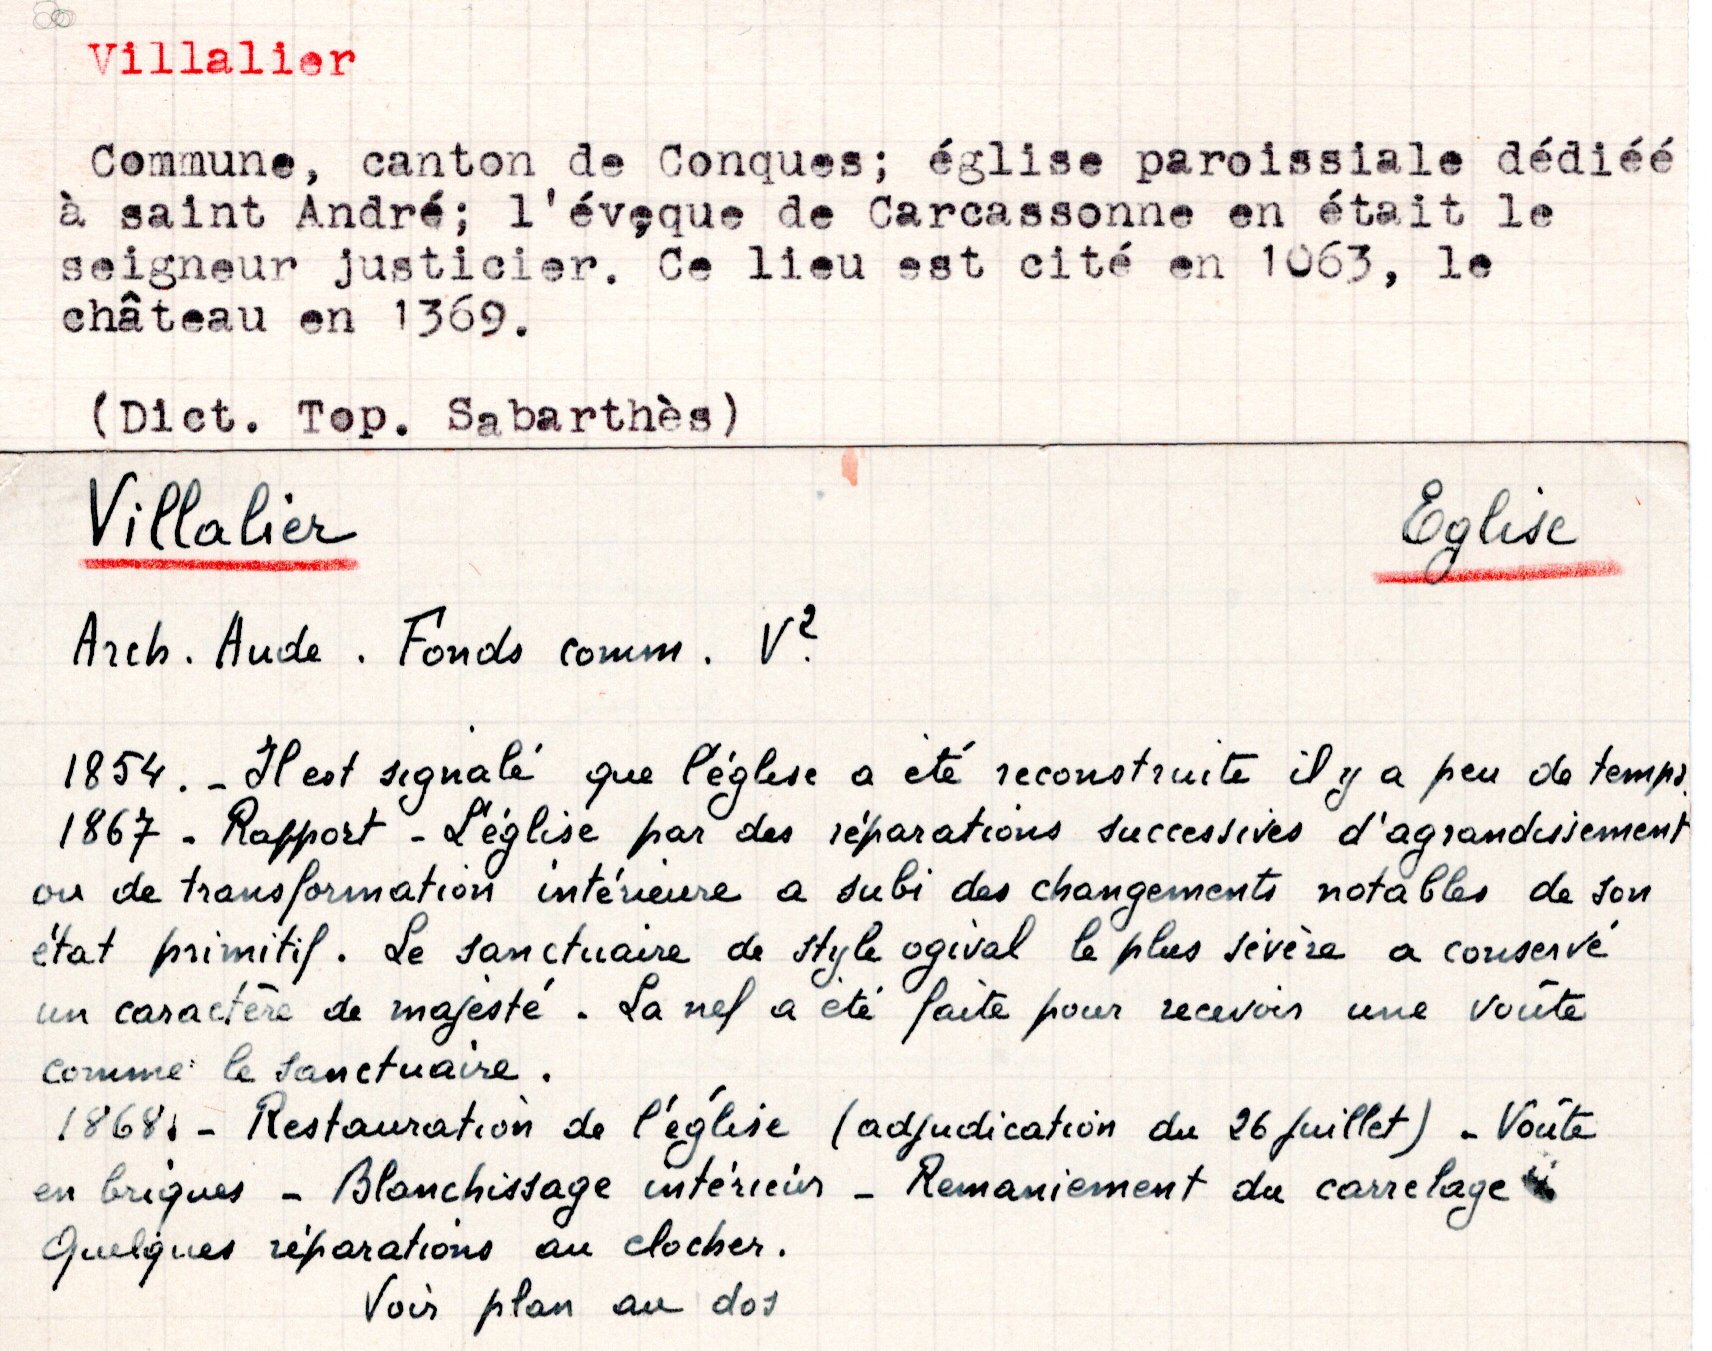 Villalier
Commune, canton de Conques; église paroissiale dédiéé
à saint André; l'évêque de Carcassonne en était le
seigneur justicier. Ce lieu est cité en 1063, le
château en 1369.
(Dict. Top. Sabarthès)
Villalier Eglise
Arch. Aude. Fonds comm. V².
1854. - Il est signalé que l'église a été reconstruite il y a peu de temps.
1867 - Rapport - L'église par des réparations successives d'agrandissement
ou de transformation intérieure a subi des changements notables de son
état primitif. Le sanctuaire de style ogival le plus sévère a conservé
un caractère de majesté. La nef a été faite pour recevoir une voûte
comme le sanctuaire.
1868. - Restauration de l'église (adjudication du 26 juillet) - Voûte
en briques - Blanchissage intérieur - Remaniement du carrelage
Quelques réparations au clocher.
Voir plan au dos